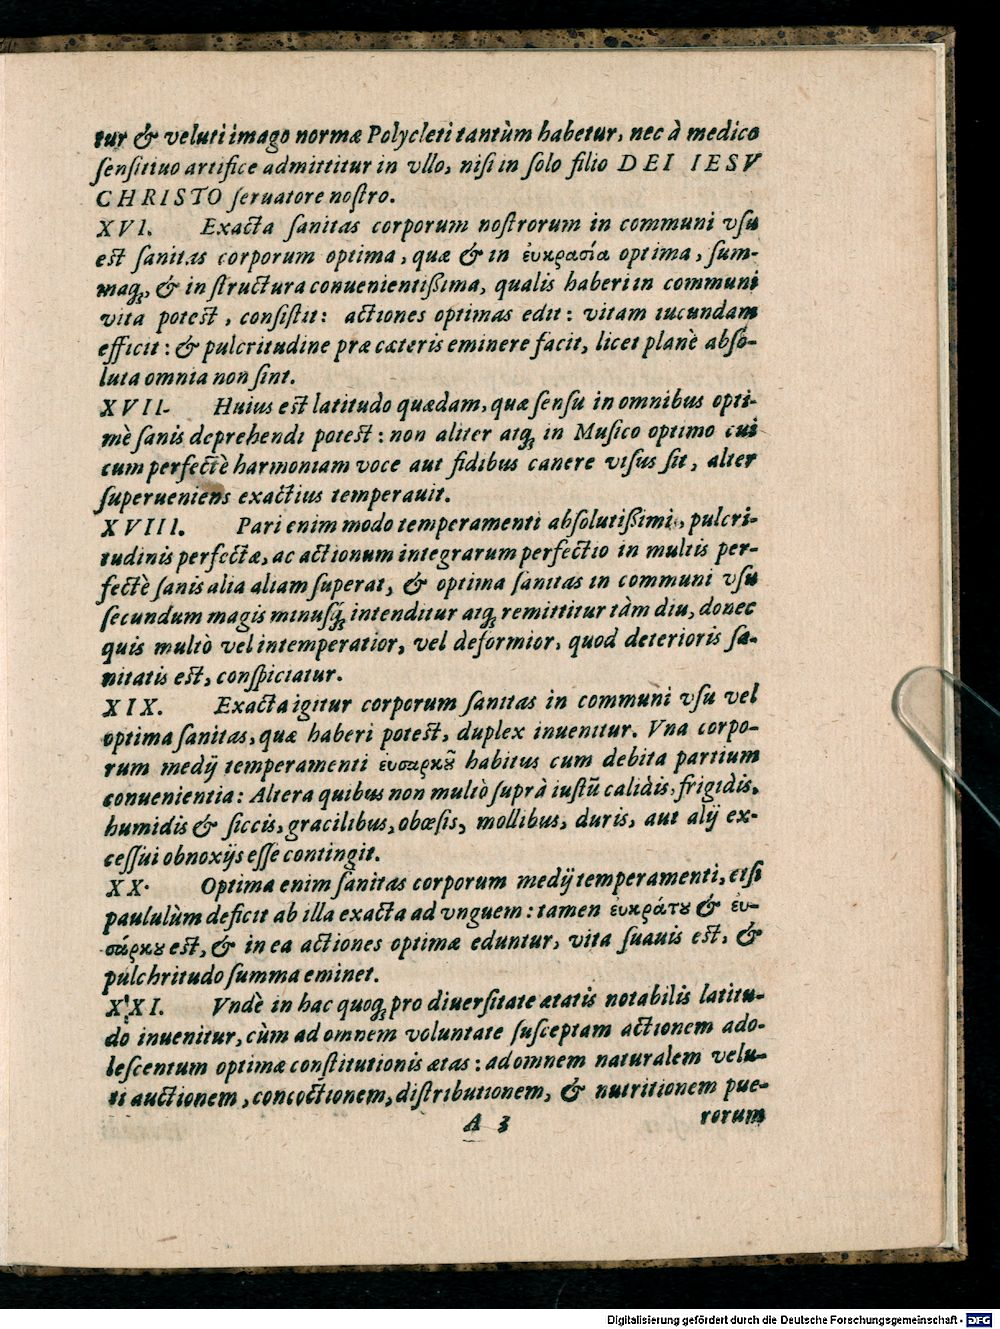 tur & veluti imago normæ Polycleti tantùm habetur, nec à medico
ſenſitiuo artifice admittitur in vllo, niſi in ſolo filio DEI IESV
CHRISTO ſeruatore noſtro.
XVI. Exacta ſanitas corporum noſtrorum in communi vſu
est ſanitas corporum optima, quæ & in ἐυκρασία optima, ſum-
maq́ꝫ, & in ſtructura conuenientißima, qualis haberi in communi
vita potest, conſiſtit: actiones optimas edit: vitam iucundam
efficit: & pulcritudine præ cæteris eminere facit, licet planè abſo-
luta omnia non ſint.
XVII. Huius est latitudo quædam, quæ ſenſu in omnibus opti-
mè ſanis deprehendi potest: non aliter atq́ꝫ in Muſico optimo cui
cum perfectè harmoniam voce aut fidibus canere viſus ſit, alter
ſuperueniens exactius temperauit.
XVIII. Pari enim modo temperamenti abſolutißimi, pulcri-
tudinis perfectæ, ac actionum integrarum perfectio in multis per-
fectè ſanis alia aliam ſuperat, & optima ſanitas in communi vſu
ſecundum magis minuſq́ꝫ intenditur atq́ꝫ remittitur tàm diu, donec
quis multò vel intemperatior, vel deformior, quod deterioris ſa-
nitatis est, conſpiciatur.
XIX. Exacta igitur corporum ſanitas in communi vſu vel
optima ſanitas, quæ haberi potest, duplex inuenitur. Vna corpo-
rum medij temperamenti ευσαρκȣ͂ habitus cum debita partium
conuenientia: Altera quibus non multò ſuprà iuſtũ calidis, frigidis,
humidis & ſiccis, gracilibus, obœſis, mollibus, duris, aut alij ex-
ceſſui obnoxijs eſſe contingit.
XX. Optima enim ſanitas corporum medij temperamenti, etſi
paululùm deficit ab illa exacta ad vnguem: tamen ἐυκράτȣ & ἐυ-
σάρκȣ est, & in ea actiones optimæ eduntur, vita ſuauis est, &
pulchritudo ſumma eminet.
XXI. Vndè in hac quoq́ꝫ pro diuerſitate ætatis notabilis latitu-
do inuenitur, cùm ad omnem voluntate ſuſceptam actionem ado-
leſcentum optimæ conſtitutionis ætas: ad omnem naturalem velu-
ti auctionem, concoctionem, diſtributionem, & nutritionem pue-
A 3 rorum
Digitalisierung gefördert durch die Deutsche Forschungsgemeinschaft - DFG